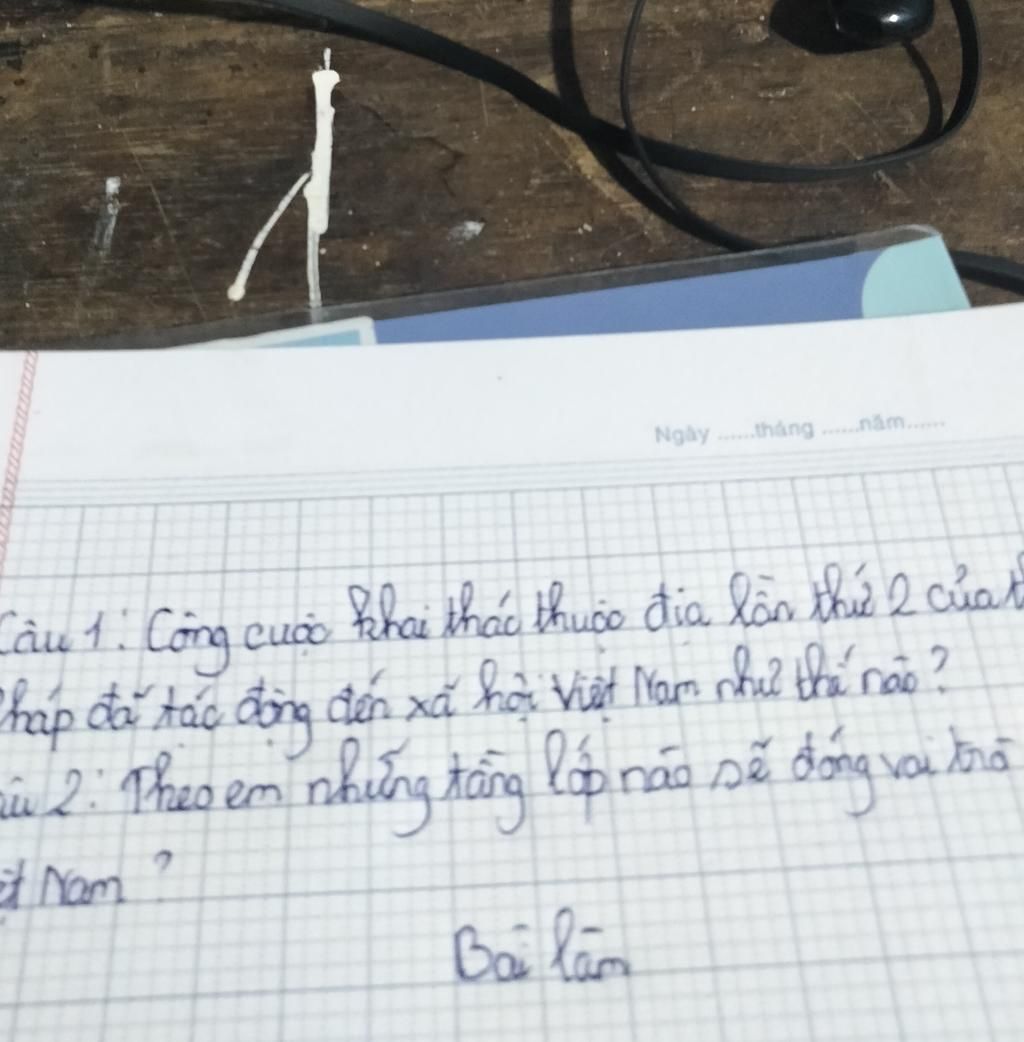 Ngày ......tháng ......năm......
Câu 1: Công cuộc khai thác thuộc địa lần thứ 2 của
Pháp đã tác động đến xã hội Việt Nam như thế nào?
2: Theo em những tầng lớp nào sẽ đóng vai trò
Nam ?
Bài làm